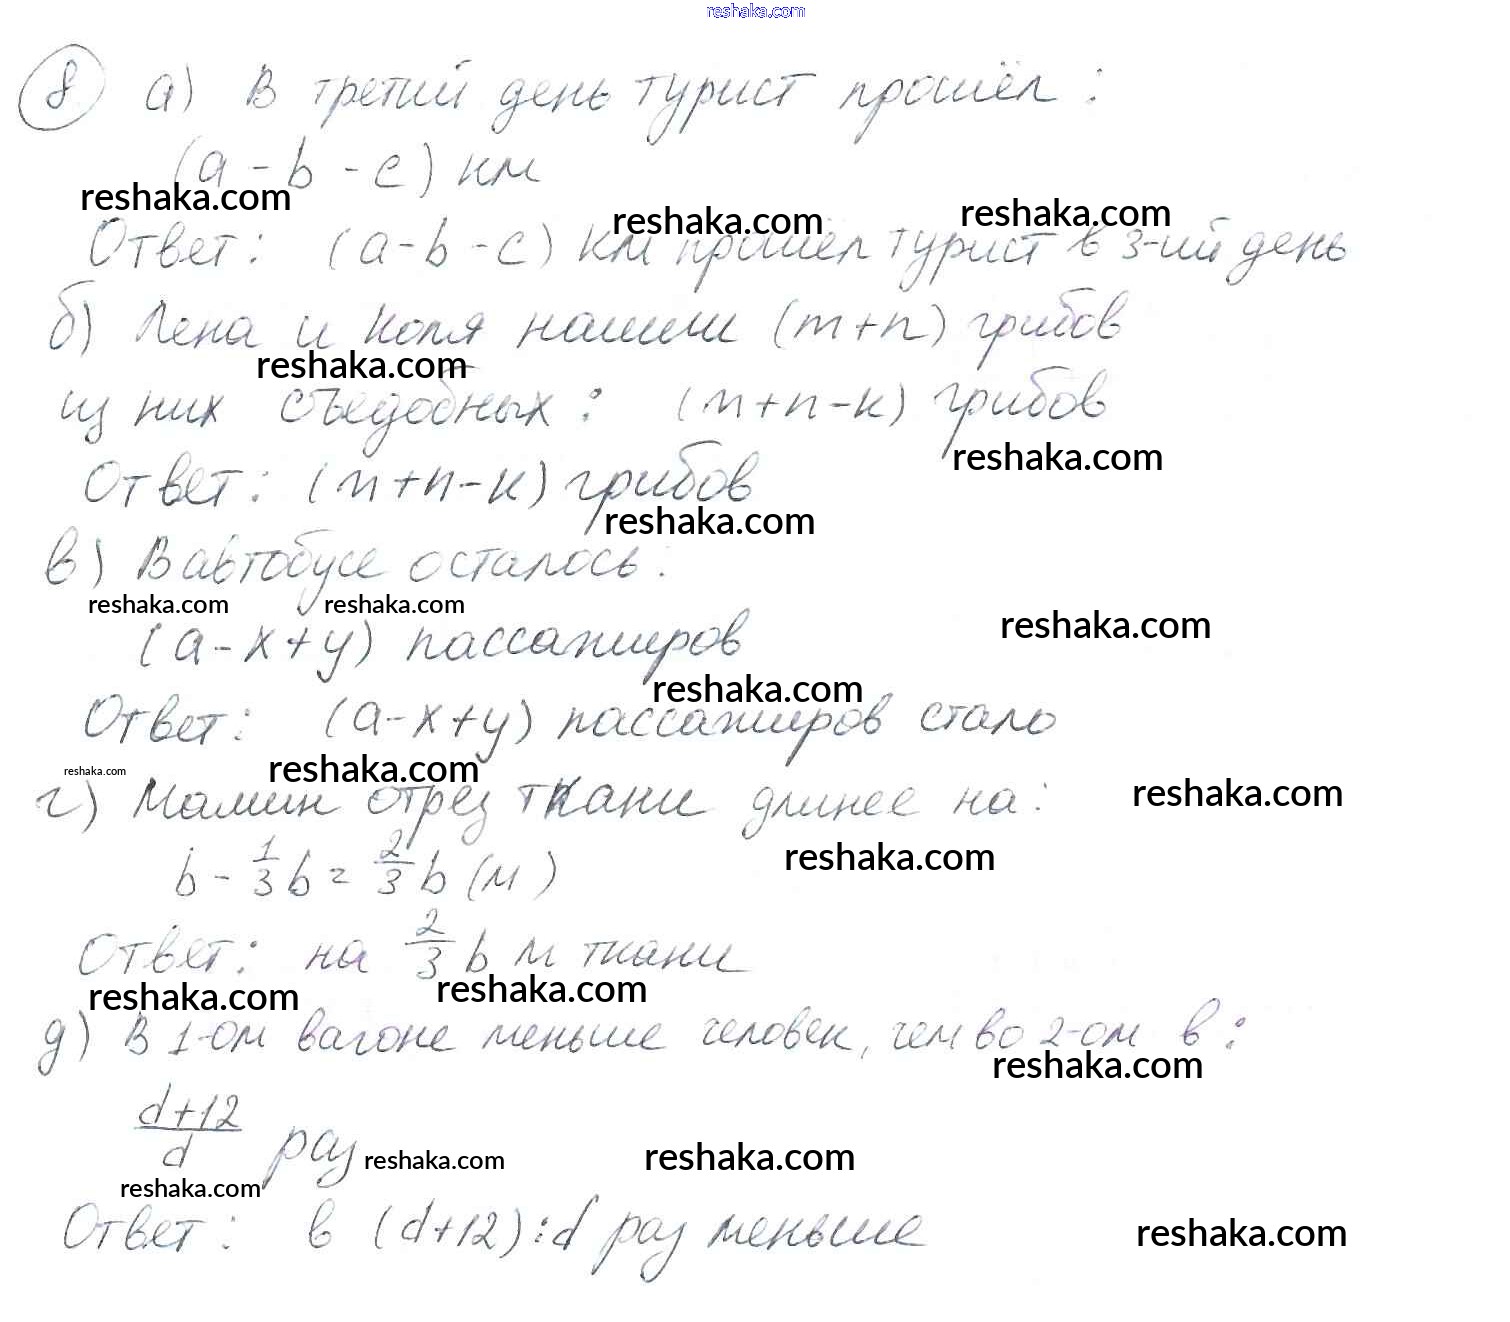 reshaka.com
8 а) В третий день турист прошёл:
(a - b - c) км
reshaka.com reshaka.com reshaka.com
Ответ: (a - b - c) км прошёл турист в 3-ий день
б) Лена и Коля нашли (m+n) грибов
reshaka.com
из них съедобных: (m+n-k) грибов
reshaka.com
Ответ: (m+n-k) грибов
reshaka.com
в) В автобусе осталось:
reshaka.com reshaka.com reshaka.com
(a-x+y) пассажиров
reshaka.com
Ответ: (a-x+y) пассажиров стало
reshaka.com reshaka.com reshaka.com
г) Мамин отрез ткани длинее на:
reshaka.com
b - 1/3 b = 2/3 b (м)
Ответ: на 2/3 b м ткани
reshaka.com reshaka.com
д) В 1-ом вагоне меньше человек, чем во 2-ом в:
reshaka.com
d+12/d раз
reshaka.com reshaka.com
reshaka.com
Ответ: в (d+12):d раз меньше
reshaka.com